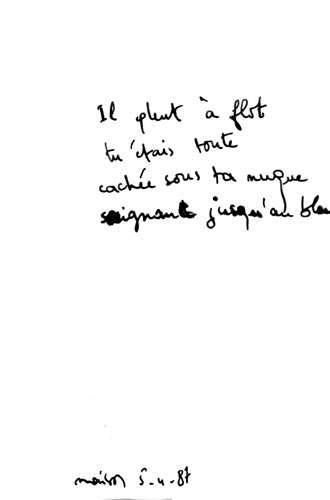 Il pleut à flot
tu étais toute
cachée sous ta nuque
saignant jusqu'au bleu
maison 5-4-87